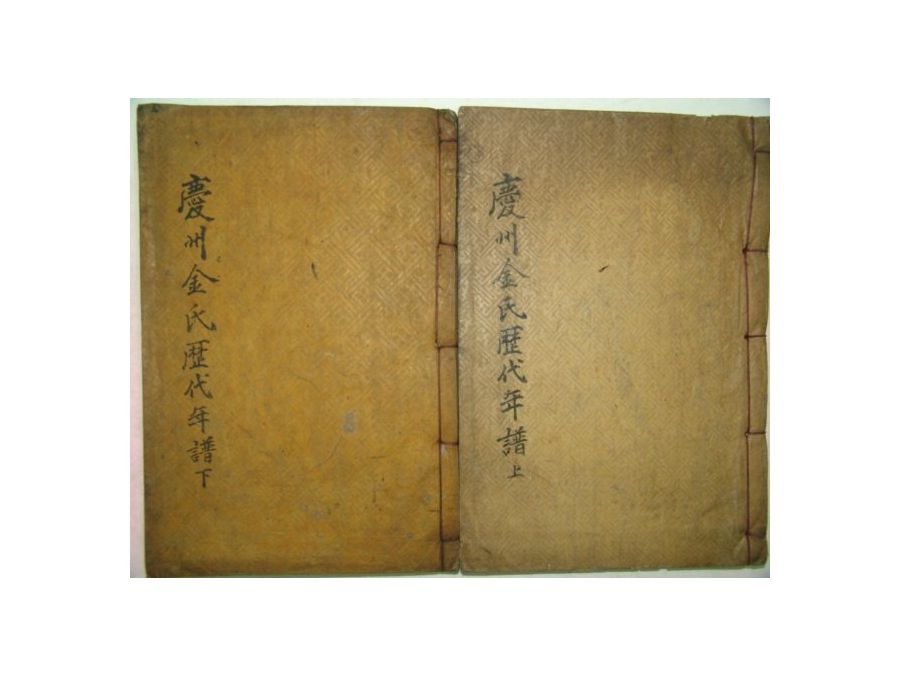 慶州金氏歷代年譜上
慶州金氏歷代年譜下